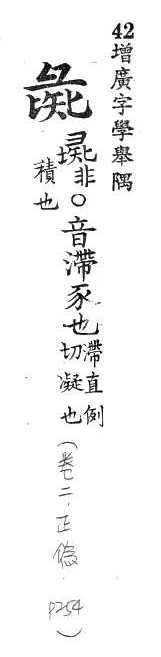 42增廣字學舉隅
彘
非○音滯豕也滯直例切凝也
積也
(卷二.正偽.p254)